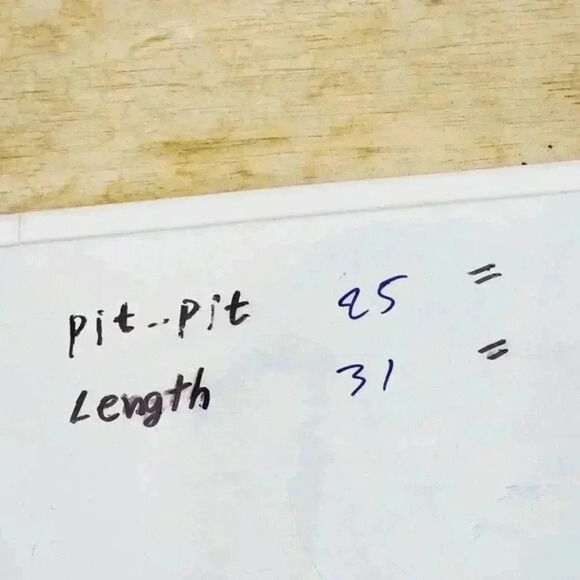 pit--pit 25 =
Length 31 =